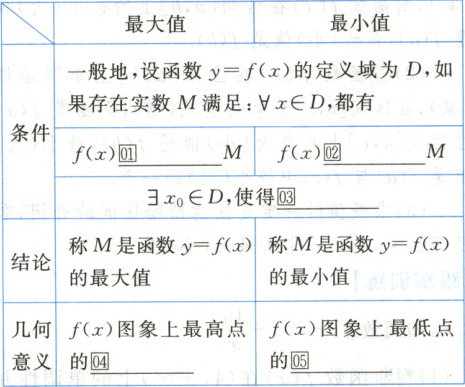 最大值 最小值
条件
一般地,设函数 y=f(x)的定义域为 D,如
果存在实数 M 满足:∀ x∈D,都有
f(x)01______M f(x)02______M
∃ x₀∈D,使得03______
结论
称 M 是函数 y=f(x)
的最大值
称 M 是函数 y=f(x)
的最小值
几何
意义
f(x)图象上最高点
的04______
f(x)图象上最低点
的05______